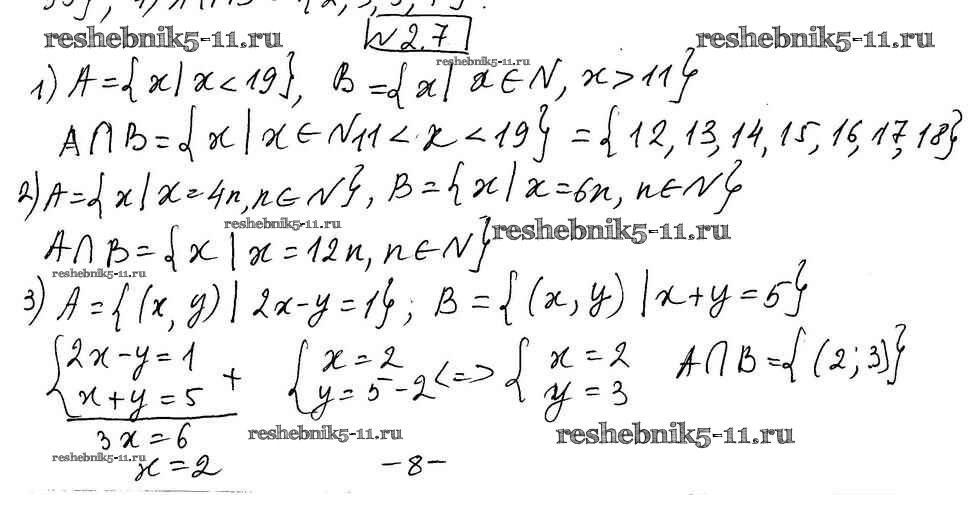 4) A∩B = {2, 3, 5, 7}.
reshebnik5-11.ru
N 2.7
reshebnik5-11.ru
reshebnik5-11.ru
1) A={x|x<19}, B={x|x∈N, x>11}
A∩B={x|x∈N 11<x<19} = {12, 13, 14, 15, 16, 17, 18}
2) A={x|x=4n, n∈N}, B={x|x=6n, n∈N}
reshebnik5-11.ru
A∩B={x|x=12n, n∈N}
reshebnik5-11.ru
reshebnik5-11.ru
3) A={(x, y)|2x-y=1}; B={(x, y)|x+y=5}
{2x-y=1 {x=2 <=> {x=2 A∩B={(2; 3)}
x+y=5 + y=5-2 y=3
3x=6
reshebnik5-11.ru
reshebnik5-11.ru
reshebnik5-11.ru
x=2
-8-